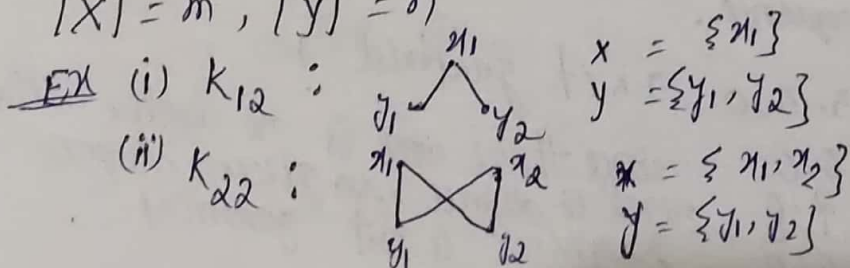 |X| = m, |Y| = n
Ex (i) K12 : x1 y1 y2 x = {x1}
y = {y1, y2}
(ii) K22 : x1 x2 y1 y2 x = {x1, x2}
y = {y1, y2}